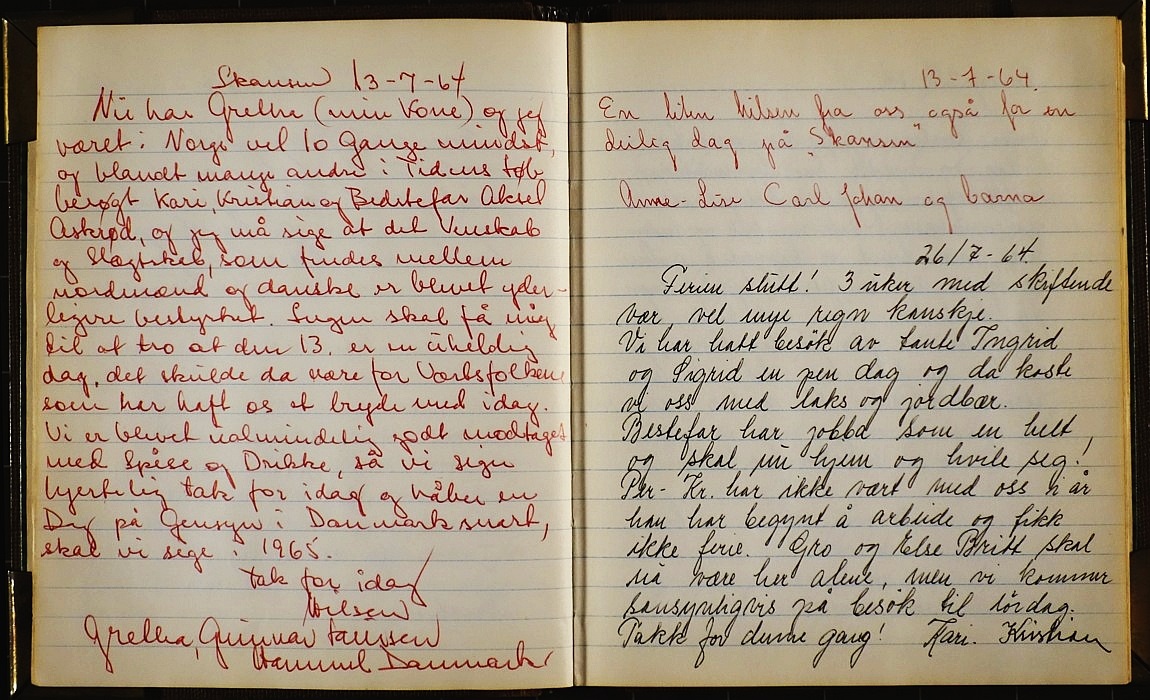 Skansen 13-7-64
Nu har Gretha (min Kone) og jeg
været i Norge vel 10 Gange mindst,
og blandt mange andre i Tidens løb
besøgt Kari, Kristian og Bedstefar Aksel
Askrød, og jeg må sige at det Venskab
og Slægtskab, som findes mellem
nordmænd og danske er blevet yder-
ligere bestyrket. Ingen skal få mig
til at tro at den 13. er en uheldig
dag, det skulde da være for Værtsfolkene
som har haft os at bryde med idag.
Vi er blevet ualmindelig godt modtaget
med Spise og Drikke, så vi siger
hjertelig tak for idag og håber en
Dag på Gensyn i Danmark snart,
skal vi sige i 1965.
Tak for idag
Hilsen
Gretha, Gunnar
Hammel Danmark
13-7-64.
En liten hilsen fra oss også for en
deilig dag på „Skansen"
Anne-Lise Carl Johan og barna
26/7-64.
Ferien slutt! 3 uker med skiftende
vær, vel mye regn kanskje.
Vi har hatt besök av tante Ingrid
og Sigrid en pen dag og da koste
vi oss med laks og jordbær.
Bestefar har jobba som en helt,
og skal nu hjem og hvile seg!
Per-Kr. har ikke vært med oss i år
han har begynt å arbeide og fikk
ikke ferie. Gro og Else Britt skal
nå være her alene, men vi kommer
sansynligvis på besök til lördag.
Takk for denne gang! Kari. Kristian